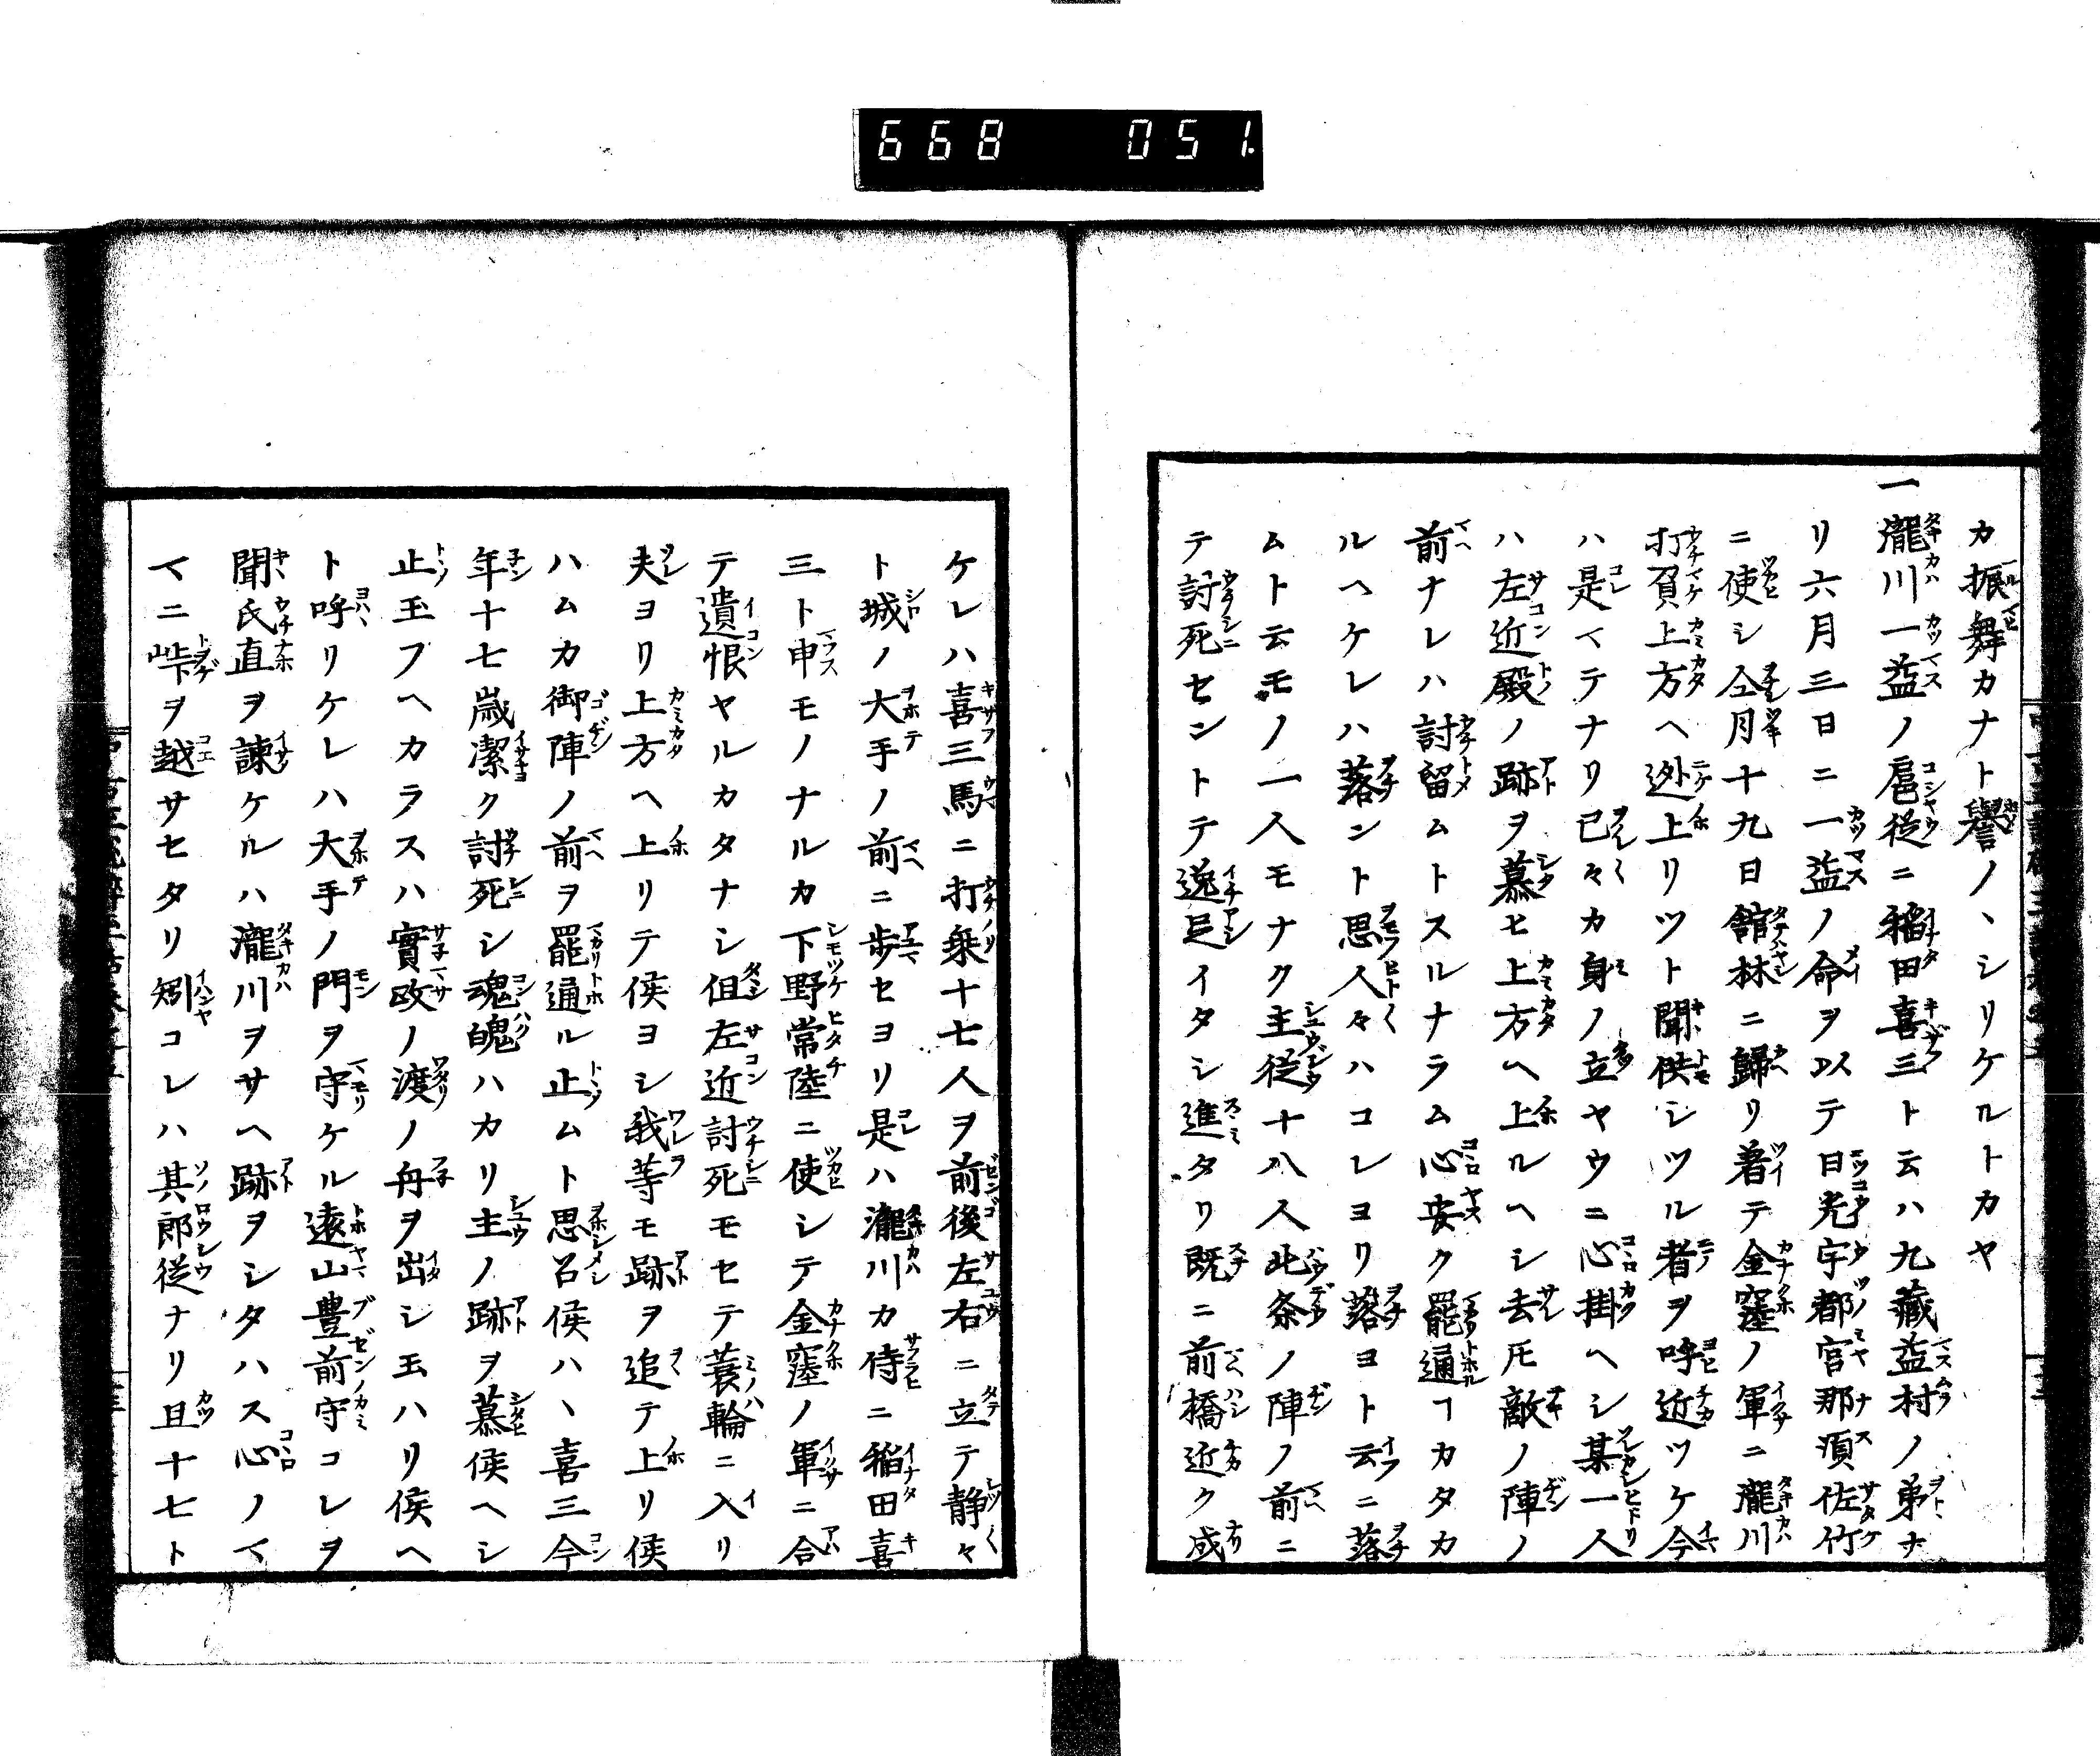 668 051
カ振舞カナト譽ノヽシリケルトカヤ
一瀧川一益ノ扈従ニ稻田喜三ト云ハ九藏益村ノ弟ナ
リ六月三日ニ一益ノ命ヲ以テ日光宇都宮那須佐竹
ニ使シ仝月十九日舘林ニ歸リ着テ金窪ノ軍ニ瀧川
打負上方ヘ迯上リツト聞供シツル者ヲ呼近ツケ今
ハ是マテナリ已々カ身ノ立ヤウニ心掛ヘシ某一人
ハ左近殿ノ跡ヲ慕ヒ上方ヘ上ルヘシ去𪜈敵ノ陣ノ
前ナレハ討留ムトスルナラム心安ク罷通ヿカタカ
ルヘケレハ落ント思人々ハコレヨリ落ヨト云ニ落
ムト云モノ一人モナク主従十八人此条ノ陣ノ前ニ
テ討死セントテ逸足イタシ進タリ既ニ前橋近ク成
ケレハ喜三馬ニ打乗十七人ヲ前後左右ニ立テ静々
ト城ノ大手ノ前ニ歩セヨリ是ハ瀧川カ侍ニ稲田喜
三ト申モノナルカ下野常陸ニ使シテ金窪ノ軍ニ合
テ遺恨ヤルカタナシ伹左近討死モセテ蓑輪ニ入リ
夫ヨリ上方ヘ上リテ候ヨシ我等モ跡ヲ追テ上リ候
ハムカ御陣ノ前ヲ罷通ル止ムト思召候ハヽ喜三今
年十七歳潔ク討死シ魂魄ハカリ主ノ跡ヲ慕候ヘシ
止玉フヘカラスハ實政ノ渡ノ舟ヲ出シ玉ハリ候ヘ
ト呼リケレハ大手ノ門ヲ守ケル遠山豊前守コレヲ
聞氏直ヲ諫ケルハ瀧川ヲサヘ跡ヲシタハス心ノマ
マニ峠ヲ越サセタリ矧コレハ其郎従ナリ且十七ト